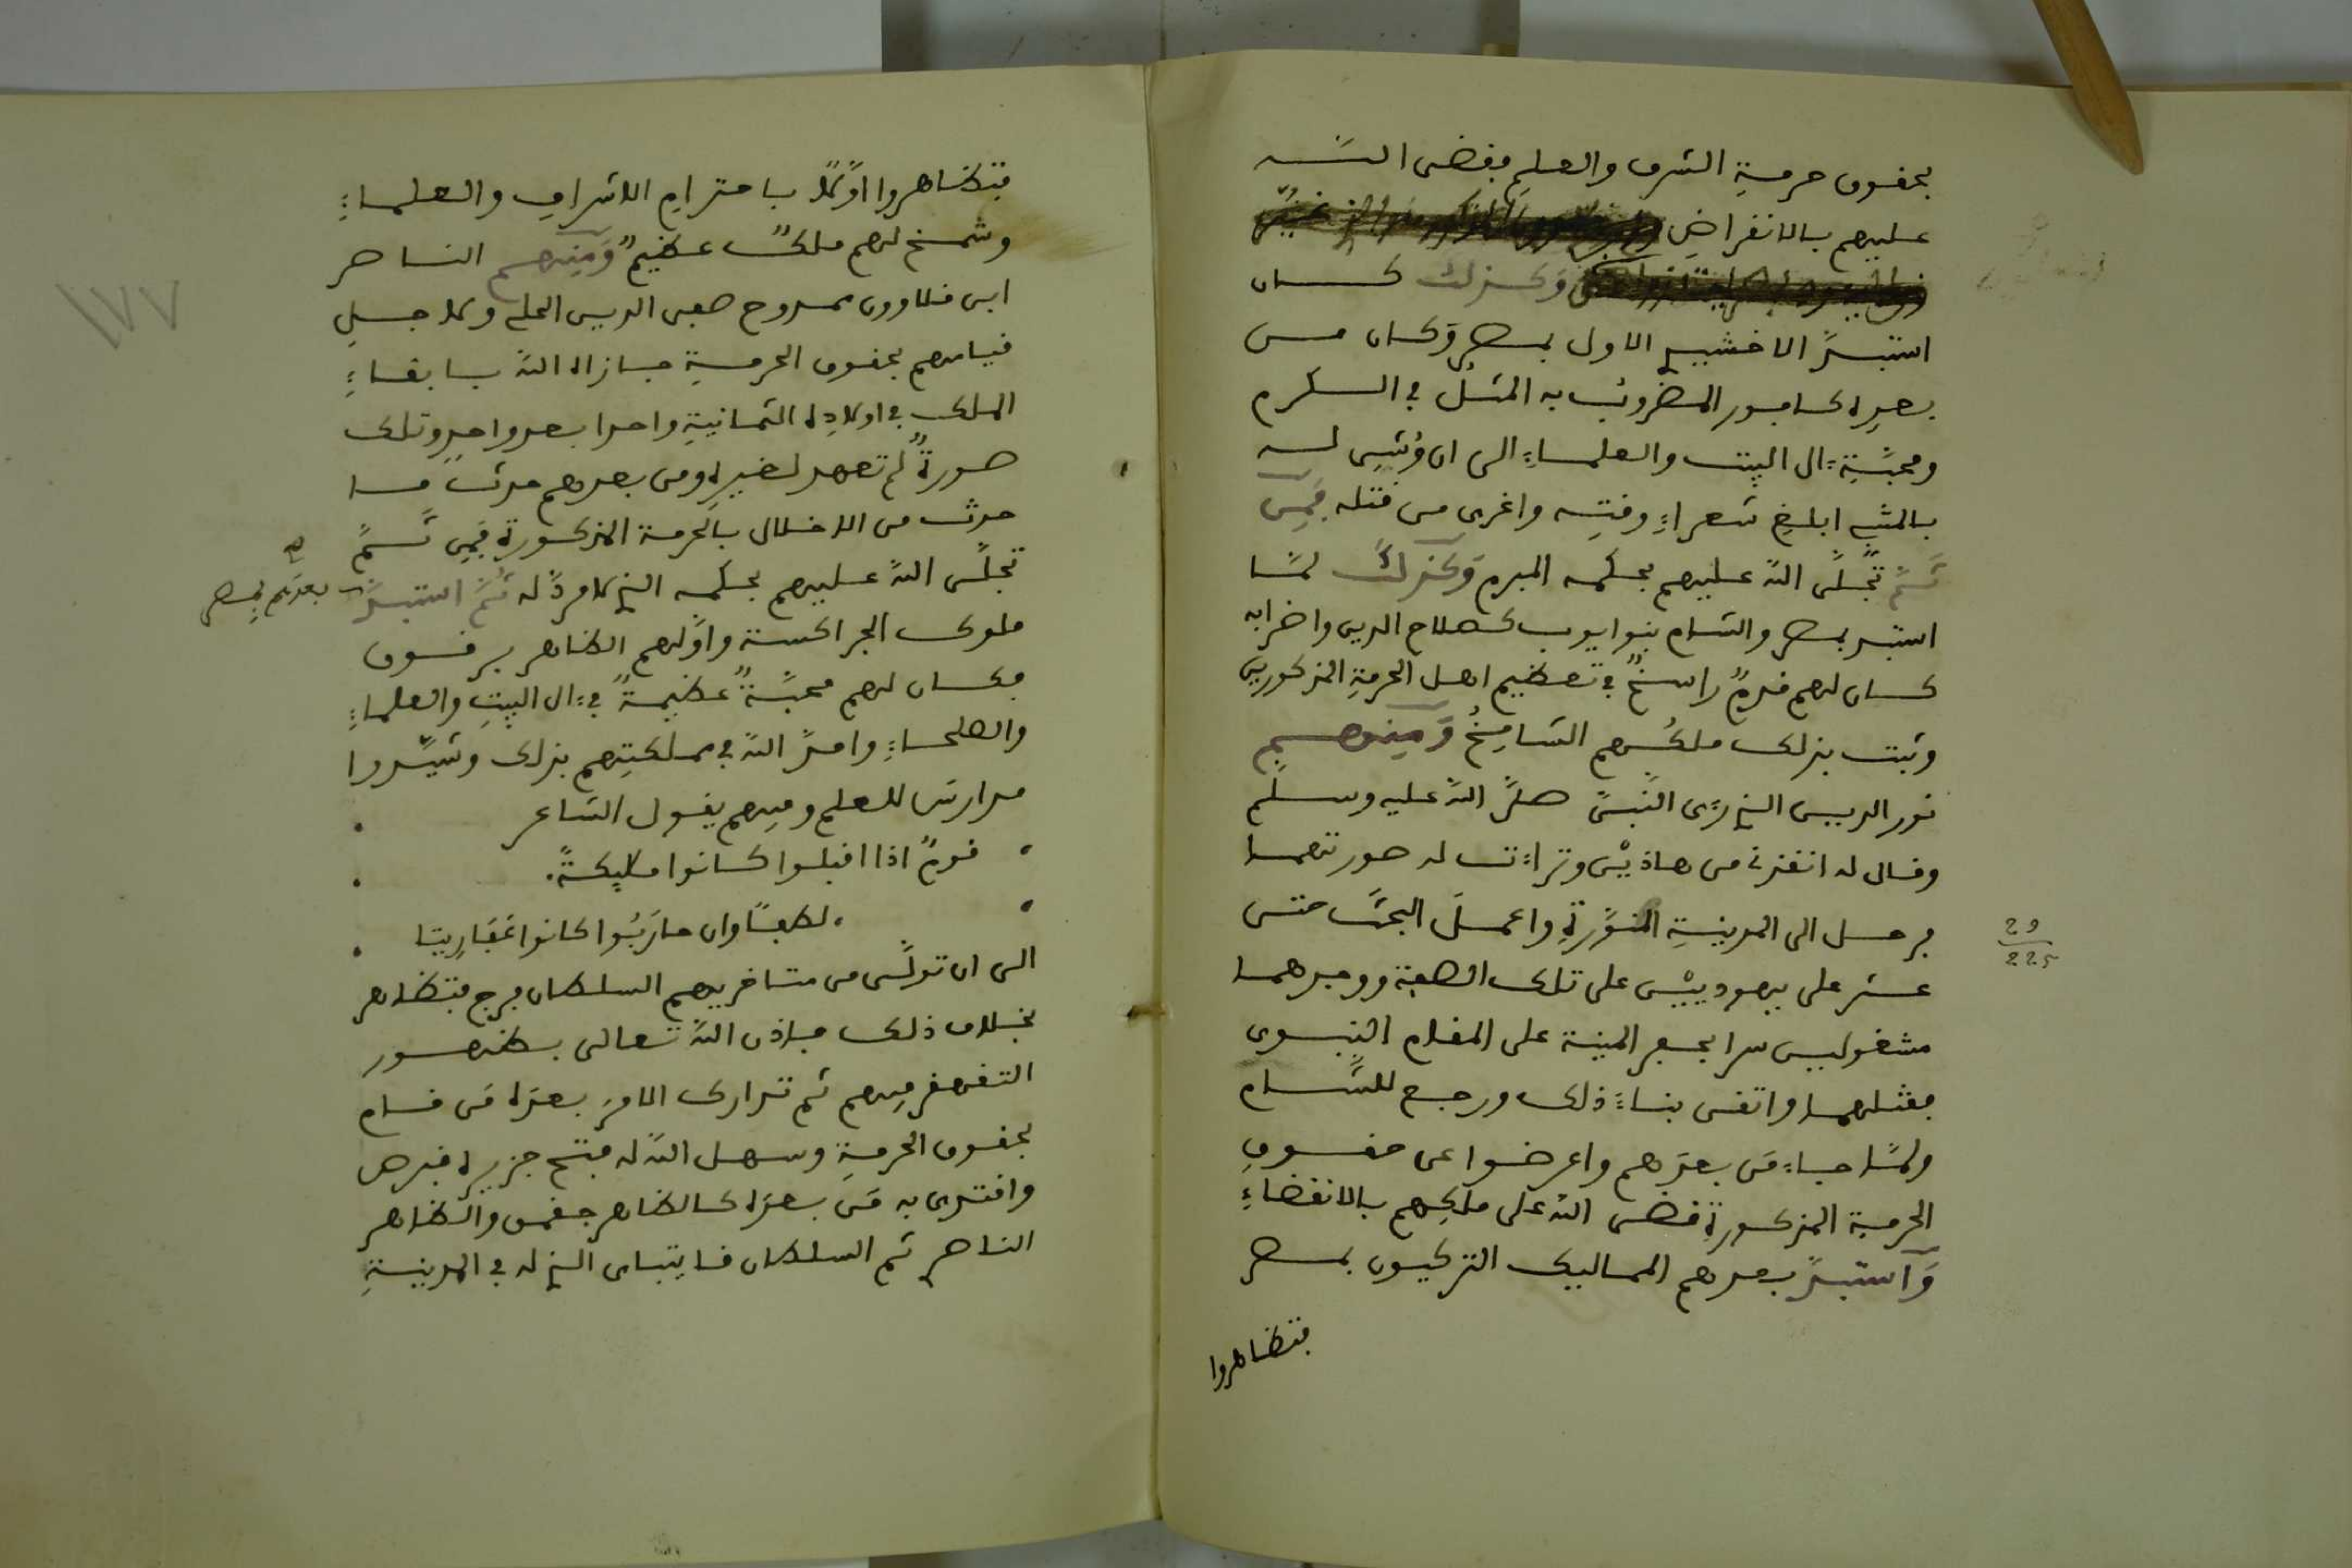 بحقوق حرمةِ الشرف والعلمِ فقضى اللّـه
عليهم بالانقراضِ
وَكذلك كــان
استبدَّ الاخشيد الاول بمصر وَكان مــن
بعدِه كافور المضروبُ به المثلُ في الــكرم
ومحبَّةِ ءال البيت والعلمــاءِ الى ان وُشِيَ لــه
بالمتنبي ابلـغِ شعراءِ وقتِــه واغرى من قتله فَمِن
ثَمَّ تجَلَّى اللّه عليهم بحكمه المبرم وَكذلكَ لمَّــا
استبد بمصر والشام بنوا يوب كـصلاح الدين واضرابه
كــان لهم قدمٌ راسـخٌ في تعظيم اهــل الحرمةِ المذكورين
وثبت بذلك ملكُــهم الشامِخُ وَمِنهــم
نور الديــن الذي رَءى النَّبيَّ صلى اللّه عليه وسـلّم
وقال له انقذني من هاذَيْن وتراءت له صورتهمــا
فرحــل الى المدينةِ المنوَّرةِ واعمــلَ البحثَ حتى
عــثر على يهودييْن على تلك الصفة ووجدهمــا
مشغوليــن سرا بحفر المبنية على المقام النبــوى
فقتلهمــا واتقن بنــاءَ ذلك ورجــع للشّــام
ولمَّــا جــاءَ مَن بعدَهم واعرضــوا عن حقــوقِ
الحرمة المذكــورةِ قضى اللّه على ملكِهم بالانقضاءِ
وَاستبدَّ بعدهم المماليك التركيــون بمــصر
فتظاهروا
29
225
فتظاهروا اوَّلًا باحترامِ الاشرافِ والعلمــاءِ
وشمــخ لهم ملكٌ عظيمٌ وَمِنهــم النــاصر
ابن قلاوون ممدوح صفي الديــن الحلي ولاجــلِ
قيامهم بحقوق الحرمــةِ جــازاه اللّه بــابقــاءِ
الملك في اولادِه الثمــانيةِ واحدا بعد واحدٍ وتلك
صــورةٌ لم تعهد لغيرِه ومن بعدهم حدثَ مــا
حدث من الاخــلال بالحرمة المذكــورةِ فَمِن ثَــمَّ
تجلَّى اللّه عليهم بحكمه الذي لا مردَّ له ثمَّ استبــدَّ
بعدَهم بمصر
ملوك الجراكسة واوَّلهم الظاهر برقــوق
فكــان لهم محبَّــةٌ عظيمــةٌ في ءال البيتِ والعلماءِ
والصلحــاءِ وامــدَّ اللّه في مملكتِهم بذلك وشيَّــدوا
مدارسَ للعلم وفيهم يقــول الشاعر
قــومٌ اذا اقبلــوا كــانوا ملايكــةً.
لطفــًا وان حارَبُوا كانوا عَفَارِيتا
الى ان تولَّى من متــاخريهم السلطان فرج فتظاهر
بخــلاف ذلك فــاذن اللّه تعــالى بــظهــور
التقهقر فيهم ثم تدارك الامرَ بعدَه مَن قــام
بحقــوق الحرمــةِ وسهــل اللّه له فتــح جزيره قبرص
واقتدى به مَن بعدَه كــالظاهر جقمق والــظاهر
الناصر ثم السلطان قــايتباى الذي له في المدينــةِ
١٧٧